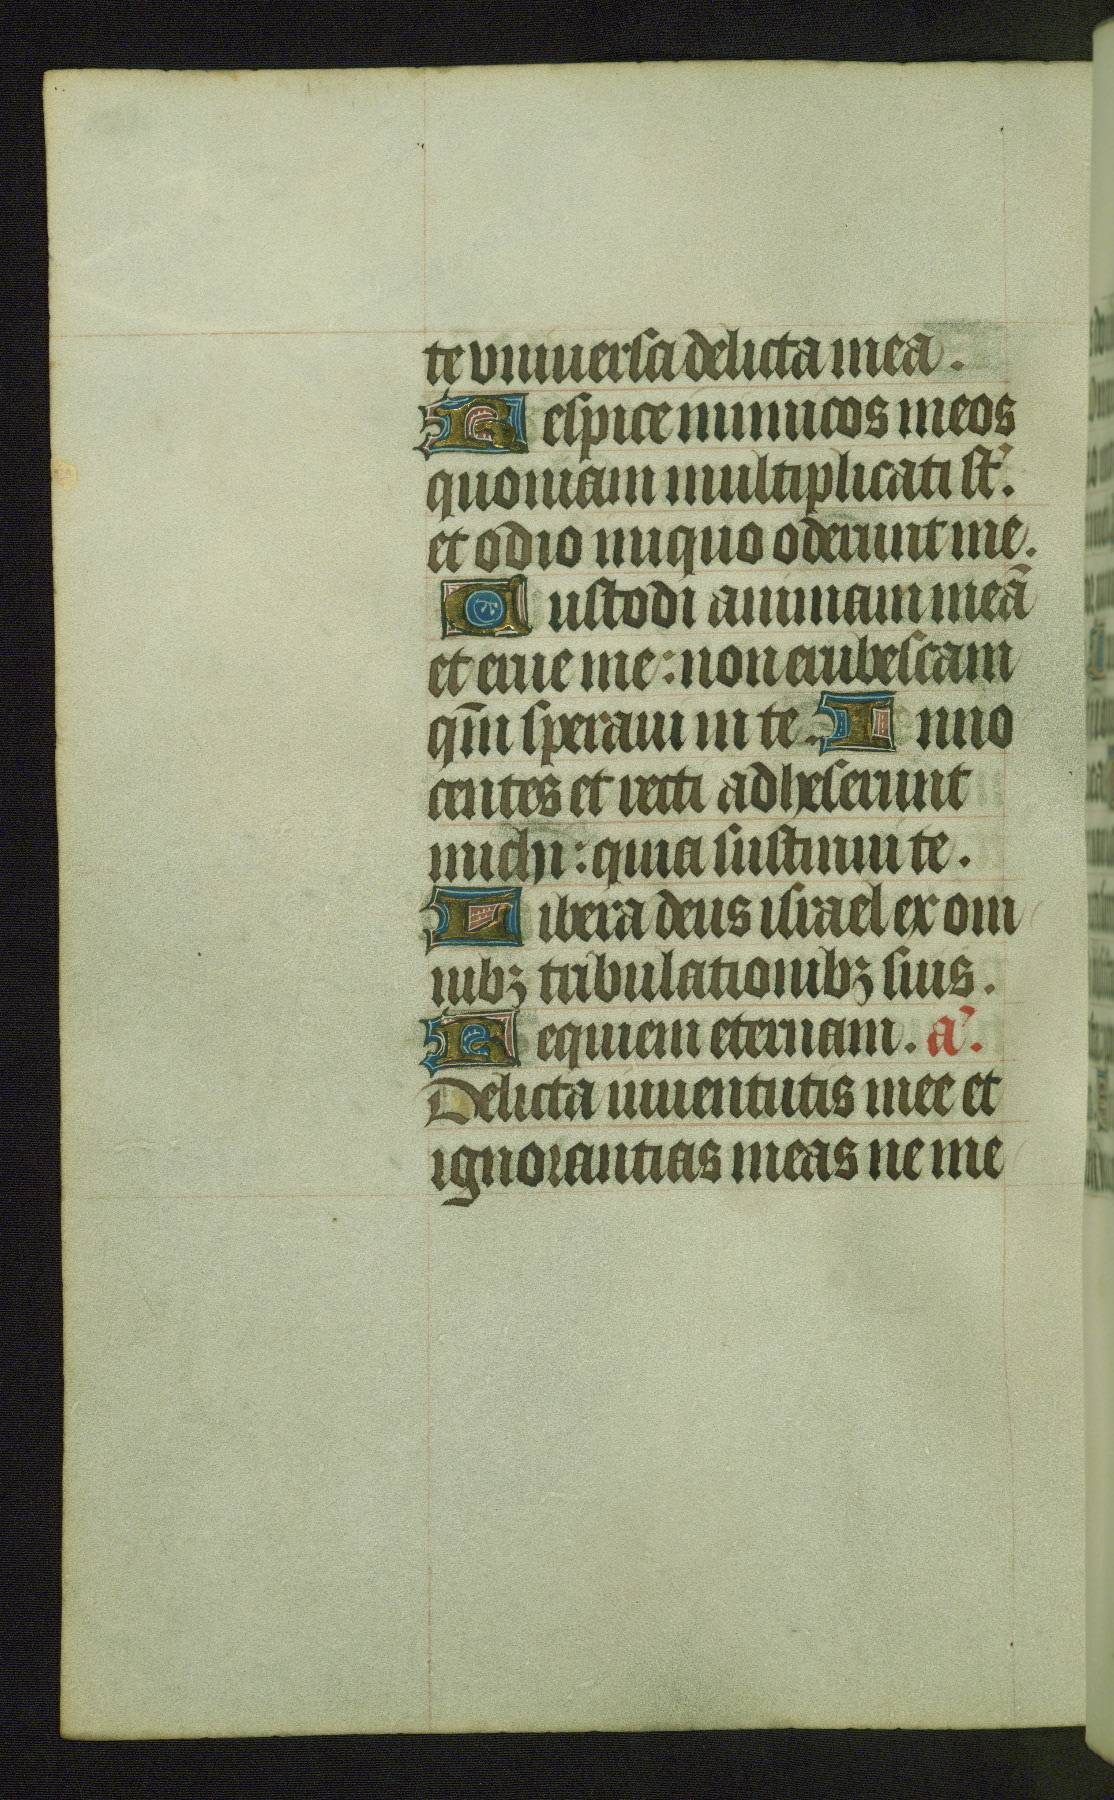 te vniuersa delicta mea.
Respice inimicos meos
quoniam multiplicati st᷑.
et odio iniquo oderunt me.
Custodi animam meā
et erue me: non erubescam
qm̄ speraui in te. Inno
centes et recti adheserunt
michi: quia sustinui te.
Libera deus israel ex om
nibꝫ tribulationibꝫ suis.
Requiem eternam. a᷑.
Delicta iuuentutis mee et
ignorantias meas ne me